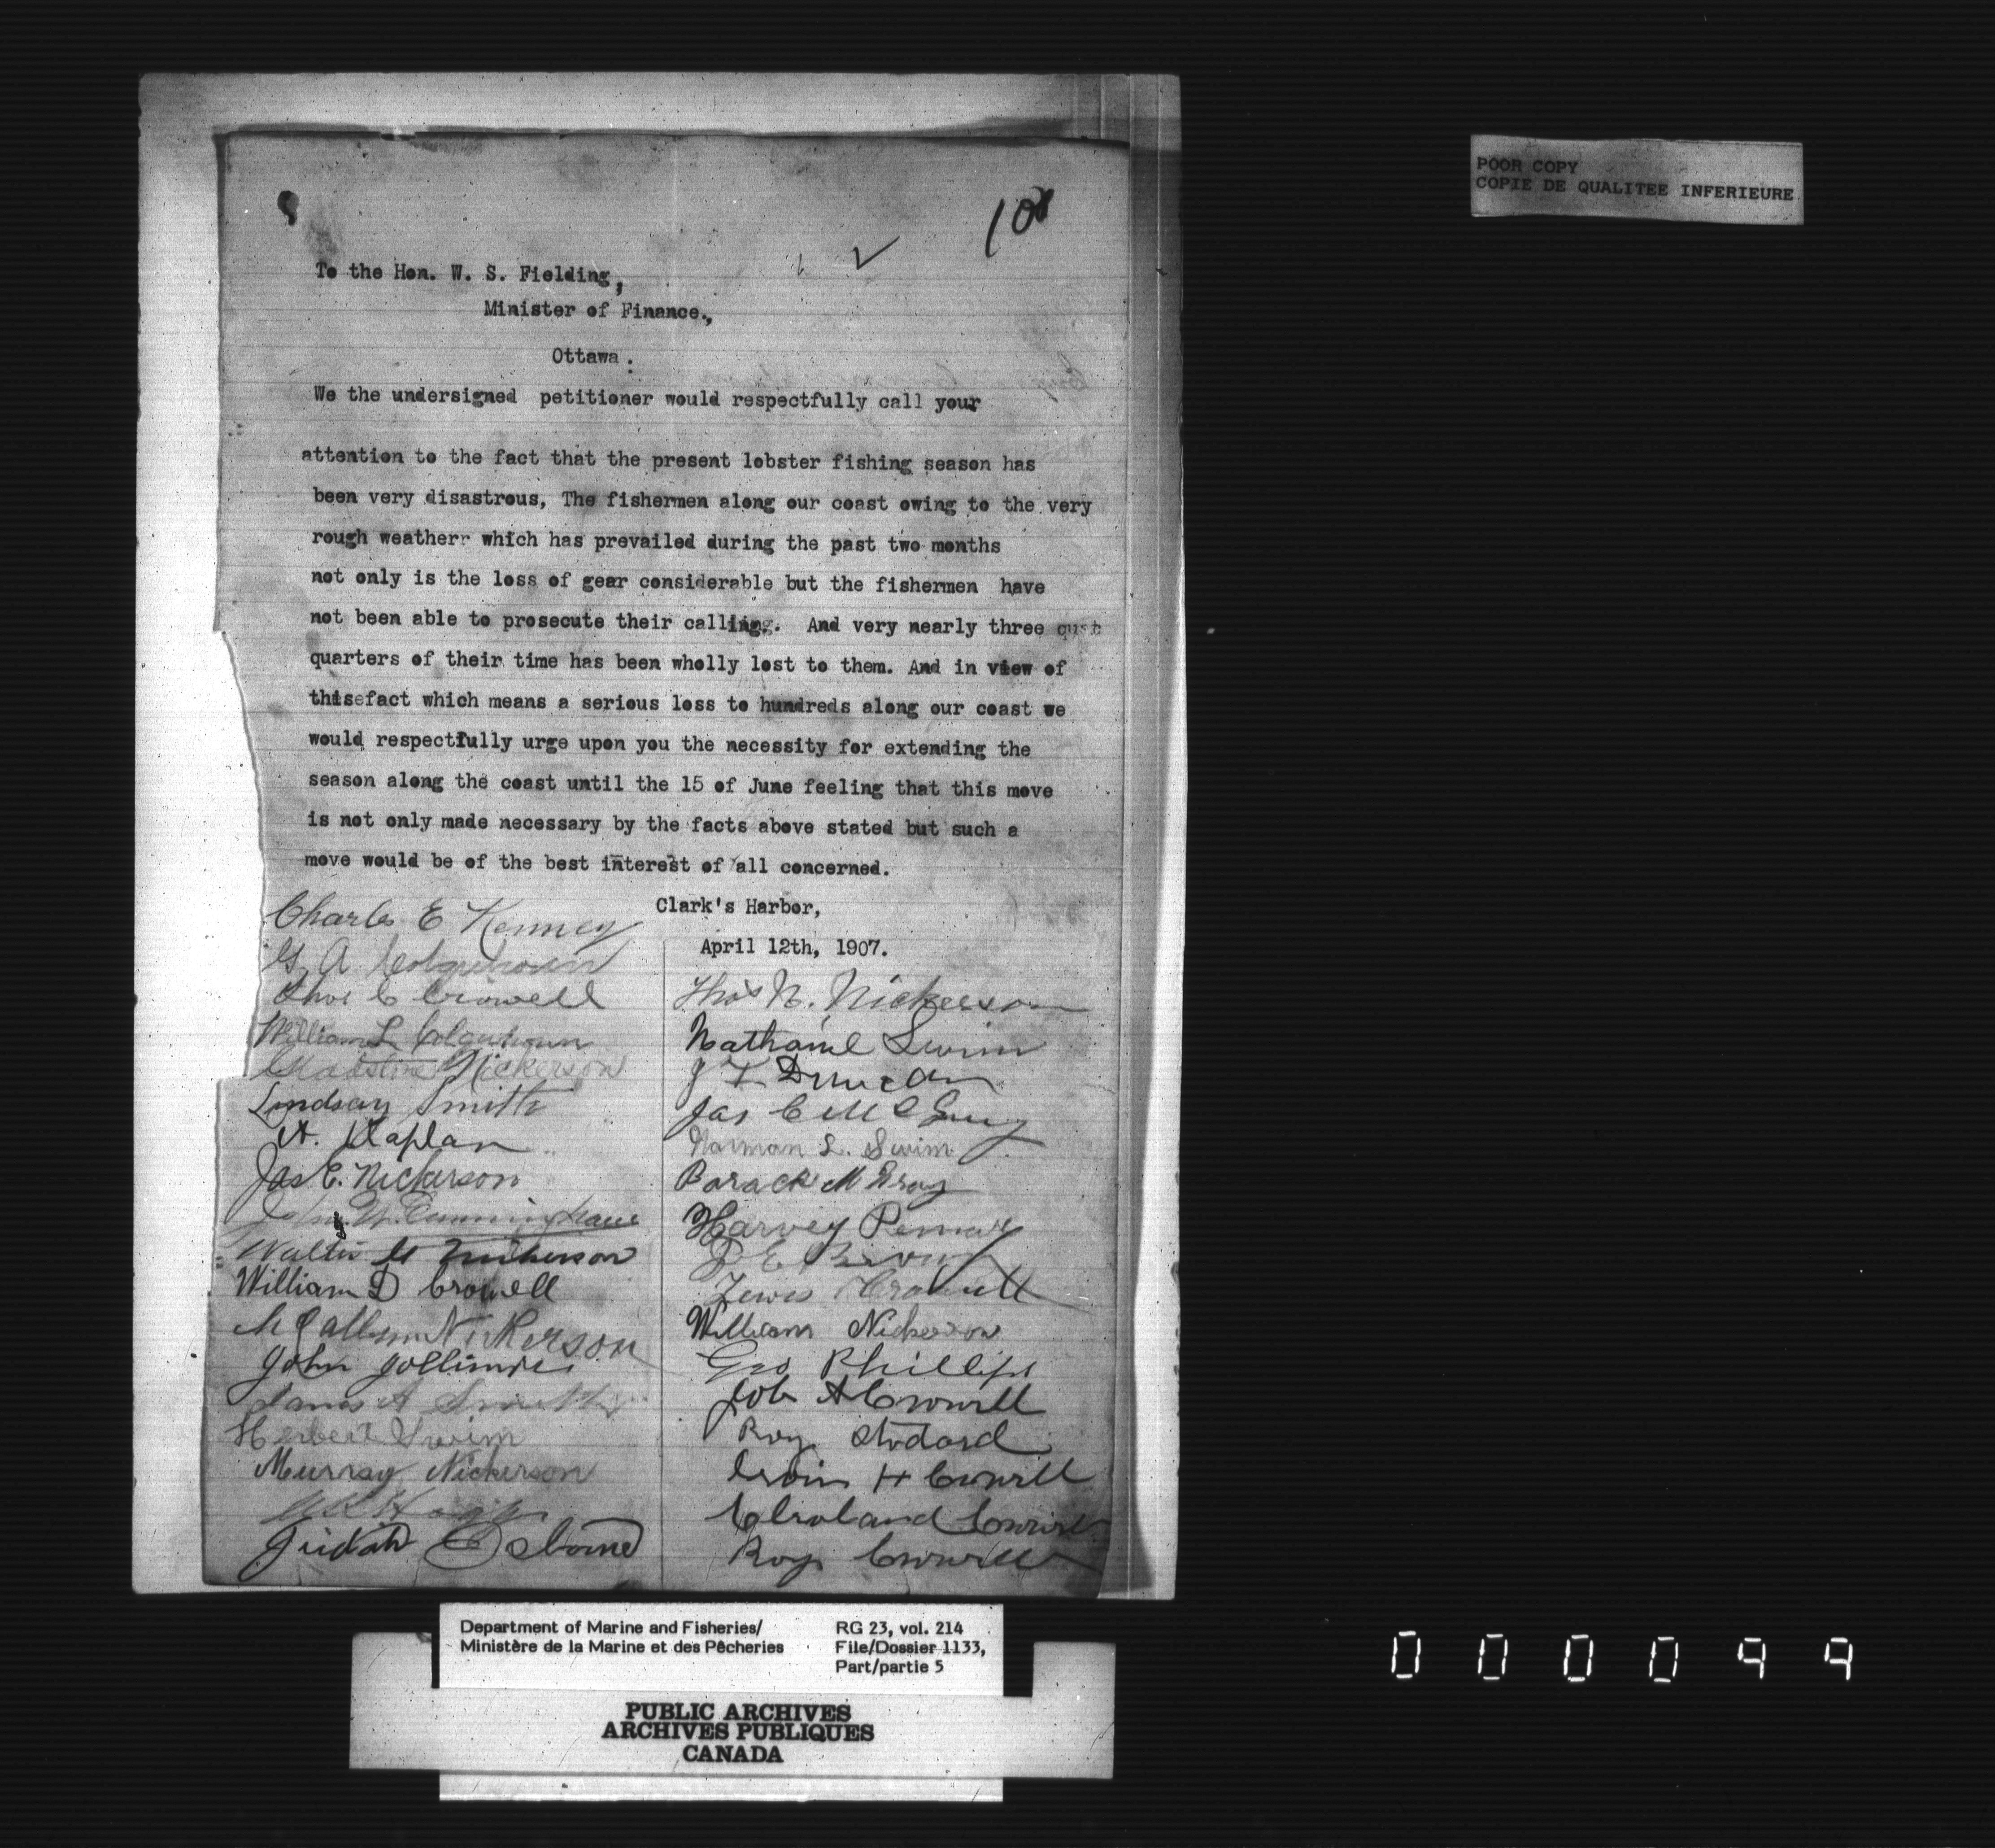 POOR COPY
COPIE DE QUALITEE INFERIEURE
10
To the Hon. W. S. Fielding,
Minister of Finance.,
Ottawa.
We the undersigned petitioner would respectfully call your
attention to the fact that the present lobster fishing season has
been very disastrous, The fishermen along our coast owing to the very
rough weatherr which has prevailed during the past two months
not only is the loss of gear considerable but the fishermen have
not been able to prosecute their calling. And very nearly three
quarters of their time has been wholly lost to them. And in view of
thisefact which means a serious loss to hundreds along our coast we
would respectfully urge upon you the necessity for extending the
season along the coast until the 15 of June feeling that this move
is not only made necessary by the facts above stated but such a
move would be of the best interest of all concerned.
Clark's Harbor,
April 12th, 1907.
Charles E Kenney
G A Colquhoun
Thos C Crowell
William L Colquhoun
Nickerson
Lindsay Smith
A. Kaplan
Jas E. Nickerson
John Cunningham
Walter Nickerson
William D Crowell
McCallum Nickerson
John Jollimore
James A Smith
Herbert Swim
Murray Nickerson
Judah Osborne
Thos N. Nickerson
Nathaniel Swim
J T Duncan
Jas C McGray
Norman L. Swim
Barack McGray
Harvey
D E
Lewis Crowell
William Nickerson
Geo Phillips
Job A Crowell
Roy Stodard
Irvin H Crowell
Cleveland Crowell
Roy Crowell
Department of Marine and Fisheries/
Ministère de la Marine et des Pêcheries
RG 23, vol. 214
File/Dossier 1133,
Part/partie 5
PUBLIC ARCHIVES
ARCHIVES PUBLIQUES
CANADA
000099